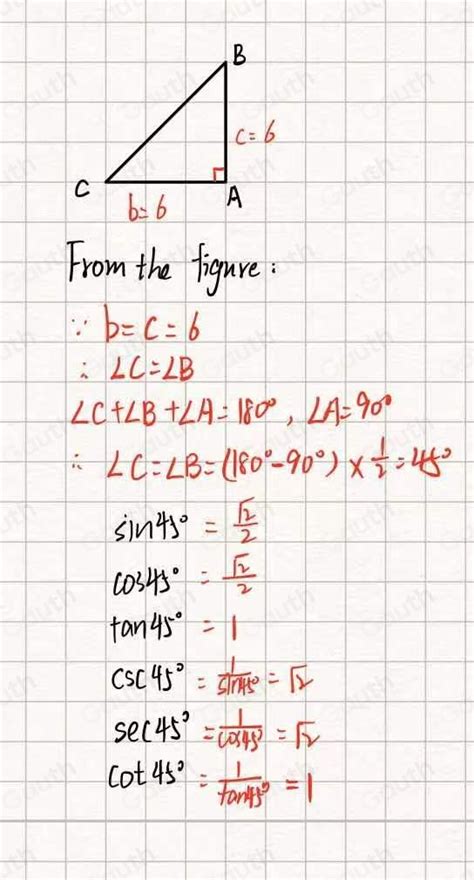 B
c=6
C
A
b=6
From the figure:
∵ b=c=6
∴ ∠C=∠B
∠C+∠B+∠A=180°, ∠A=90°
∴ ∠C=∠B=(180°-90°)×1/2=45°
sin45° = √2/2
cos45° = √2/2
tan45° = 1
csc45° = 1/sin45° = √2
sec45° = 1/cos45° = √2
cot45° = 1/tan45° = 1
Gauth